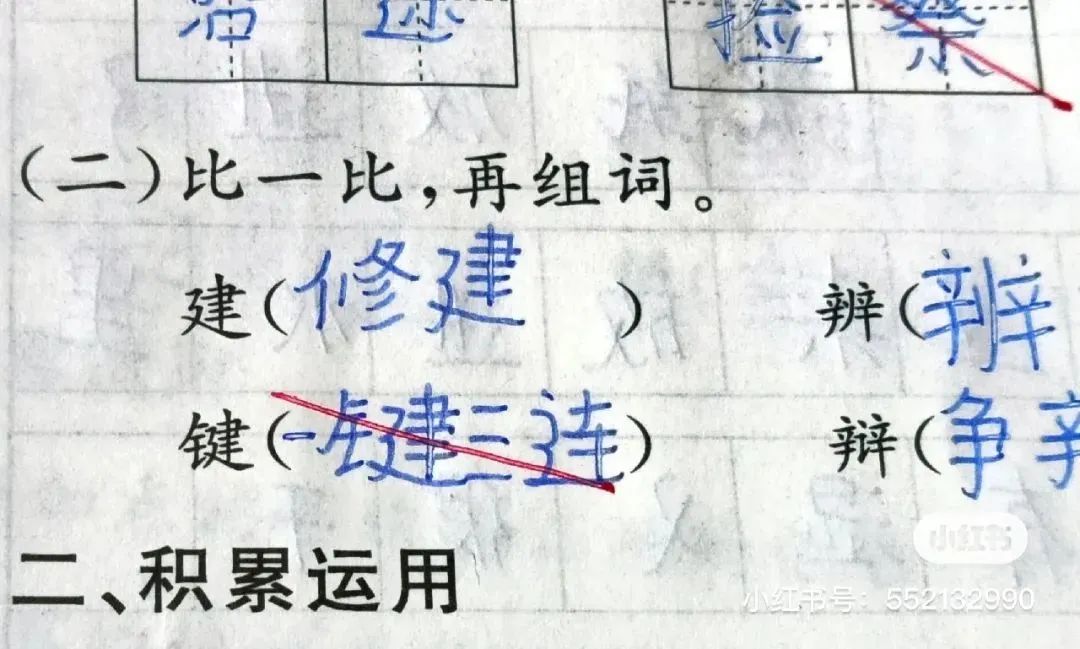 捡
（二）比一比，再组词。
建（修建） 辨（辨
键（一键三连） 辩（争
二、积累运用
小红书
小红书号：552132990